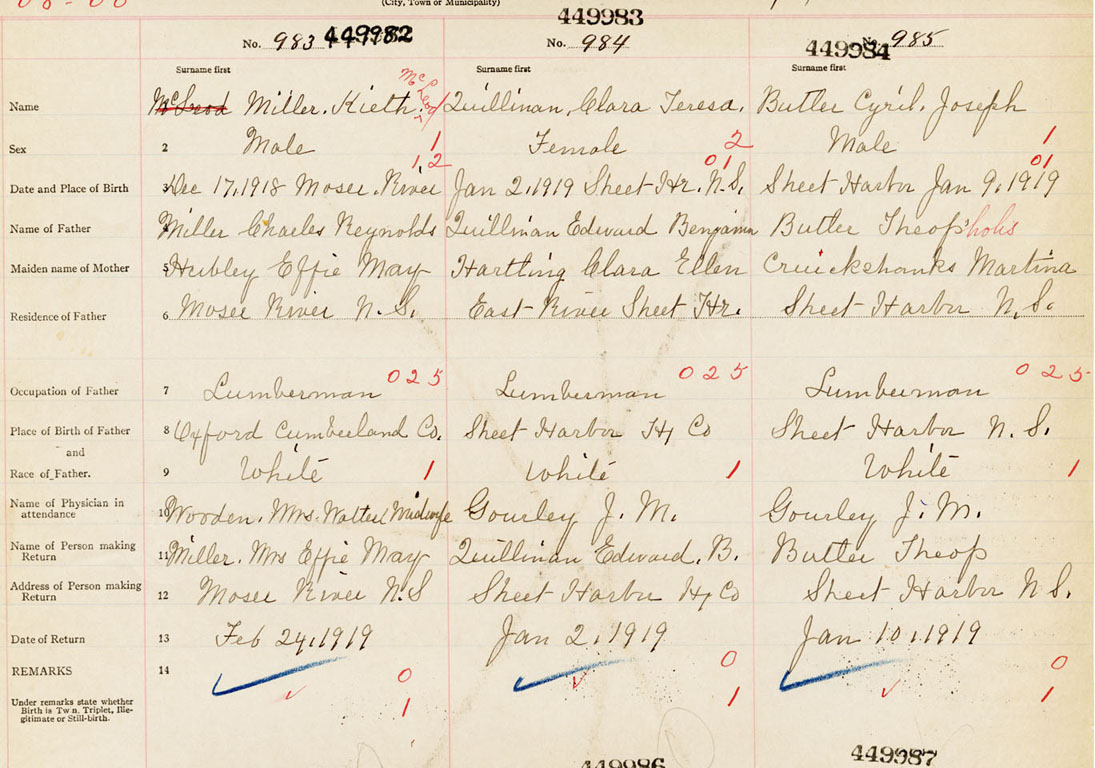 (City, Town or Municipality)
449983
No. 983 449982 No. 984 449984 No. 985
Surname first Surname first Surname first
Name McLeod Miller, Kieth. McLeod Quillinan, Clara Teresa. Butler Cyril, Joseph
Sex 2 Male 1 Female 2 Male 1
1,2 01 01
Date and Place of Birth 3 Dec 17, 1918 Moser River Jan 2, 1919 Sheet Hr. N.S. Sheet Harbor Jan 9, 1919
Name of Father 4 Miller Charles Reynolds Quillinan Edward Benjamin Butler Theop'holis
Maiden name of Mother 5 Hubley Effie May Hartling Clara Ellen Cruickshanks Martina
Residence of Father 6 Moser River N.S. East River Sheet Hr. Sheet Harbor N.S.
025 025 025
Occupation of Father 7 Lumberman Lumberman Lumberman
Place of Birth of Father 8 Oxford Cumberland Co. Sheet Harbor Hx Co Sheet Harbor N.S.
and
Race of Father. 9 White 1 White 1 White 1
Name of Physician in attendance 10 Wooden, Mrs. Walter Midwife Gourley J. M. Gourley J. M.
Name of Person making Return 11 Miller, Mrs Effie May Quillinan Edward. B. Butler Theop
Address of Person making Return 12 Moser River N.S Sheet Harbor Hx Co Sheet Harbor N.S.
Date of Return 13 Feb 24, 1919 Jan 2, 1919 Jan 10, 1919
REMARKS 14 0 0 0
Under remarks state whether Birth is Twin, Triplet, Ille-
gitimate or Still-birth. 1 1 1
449986 449987